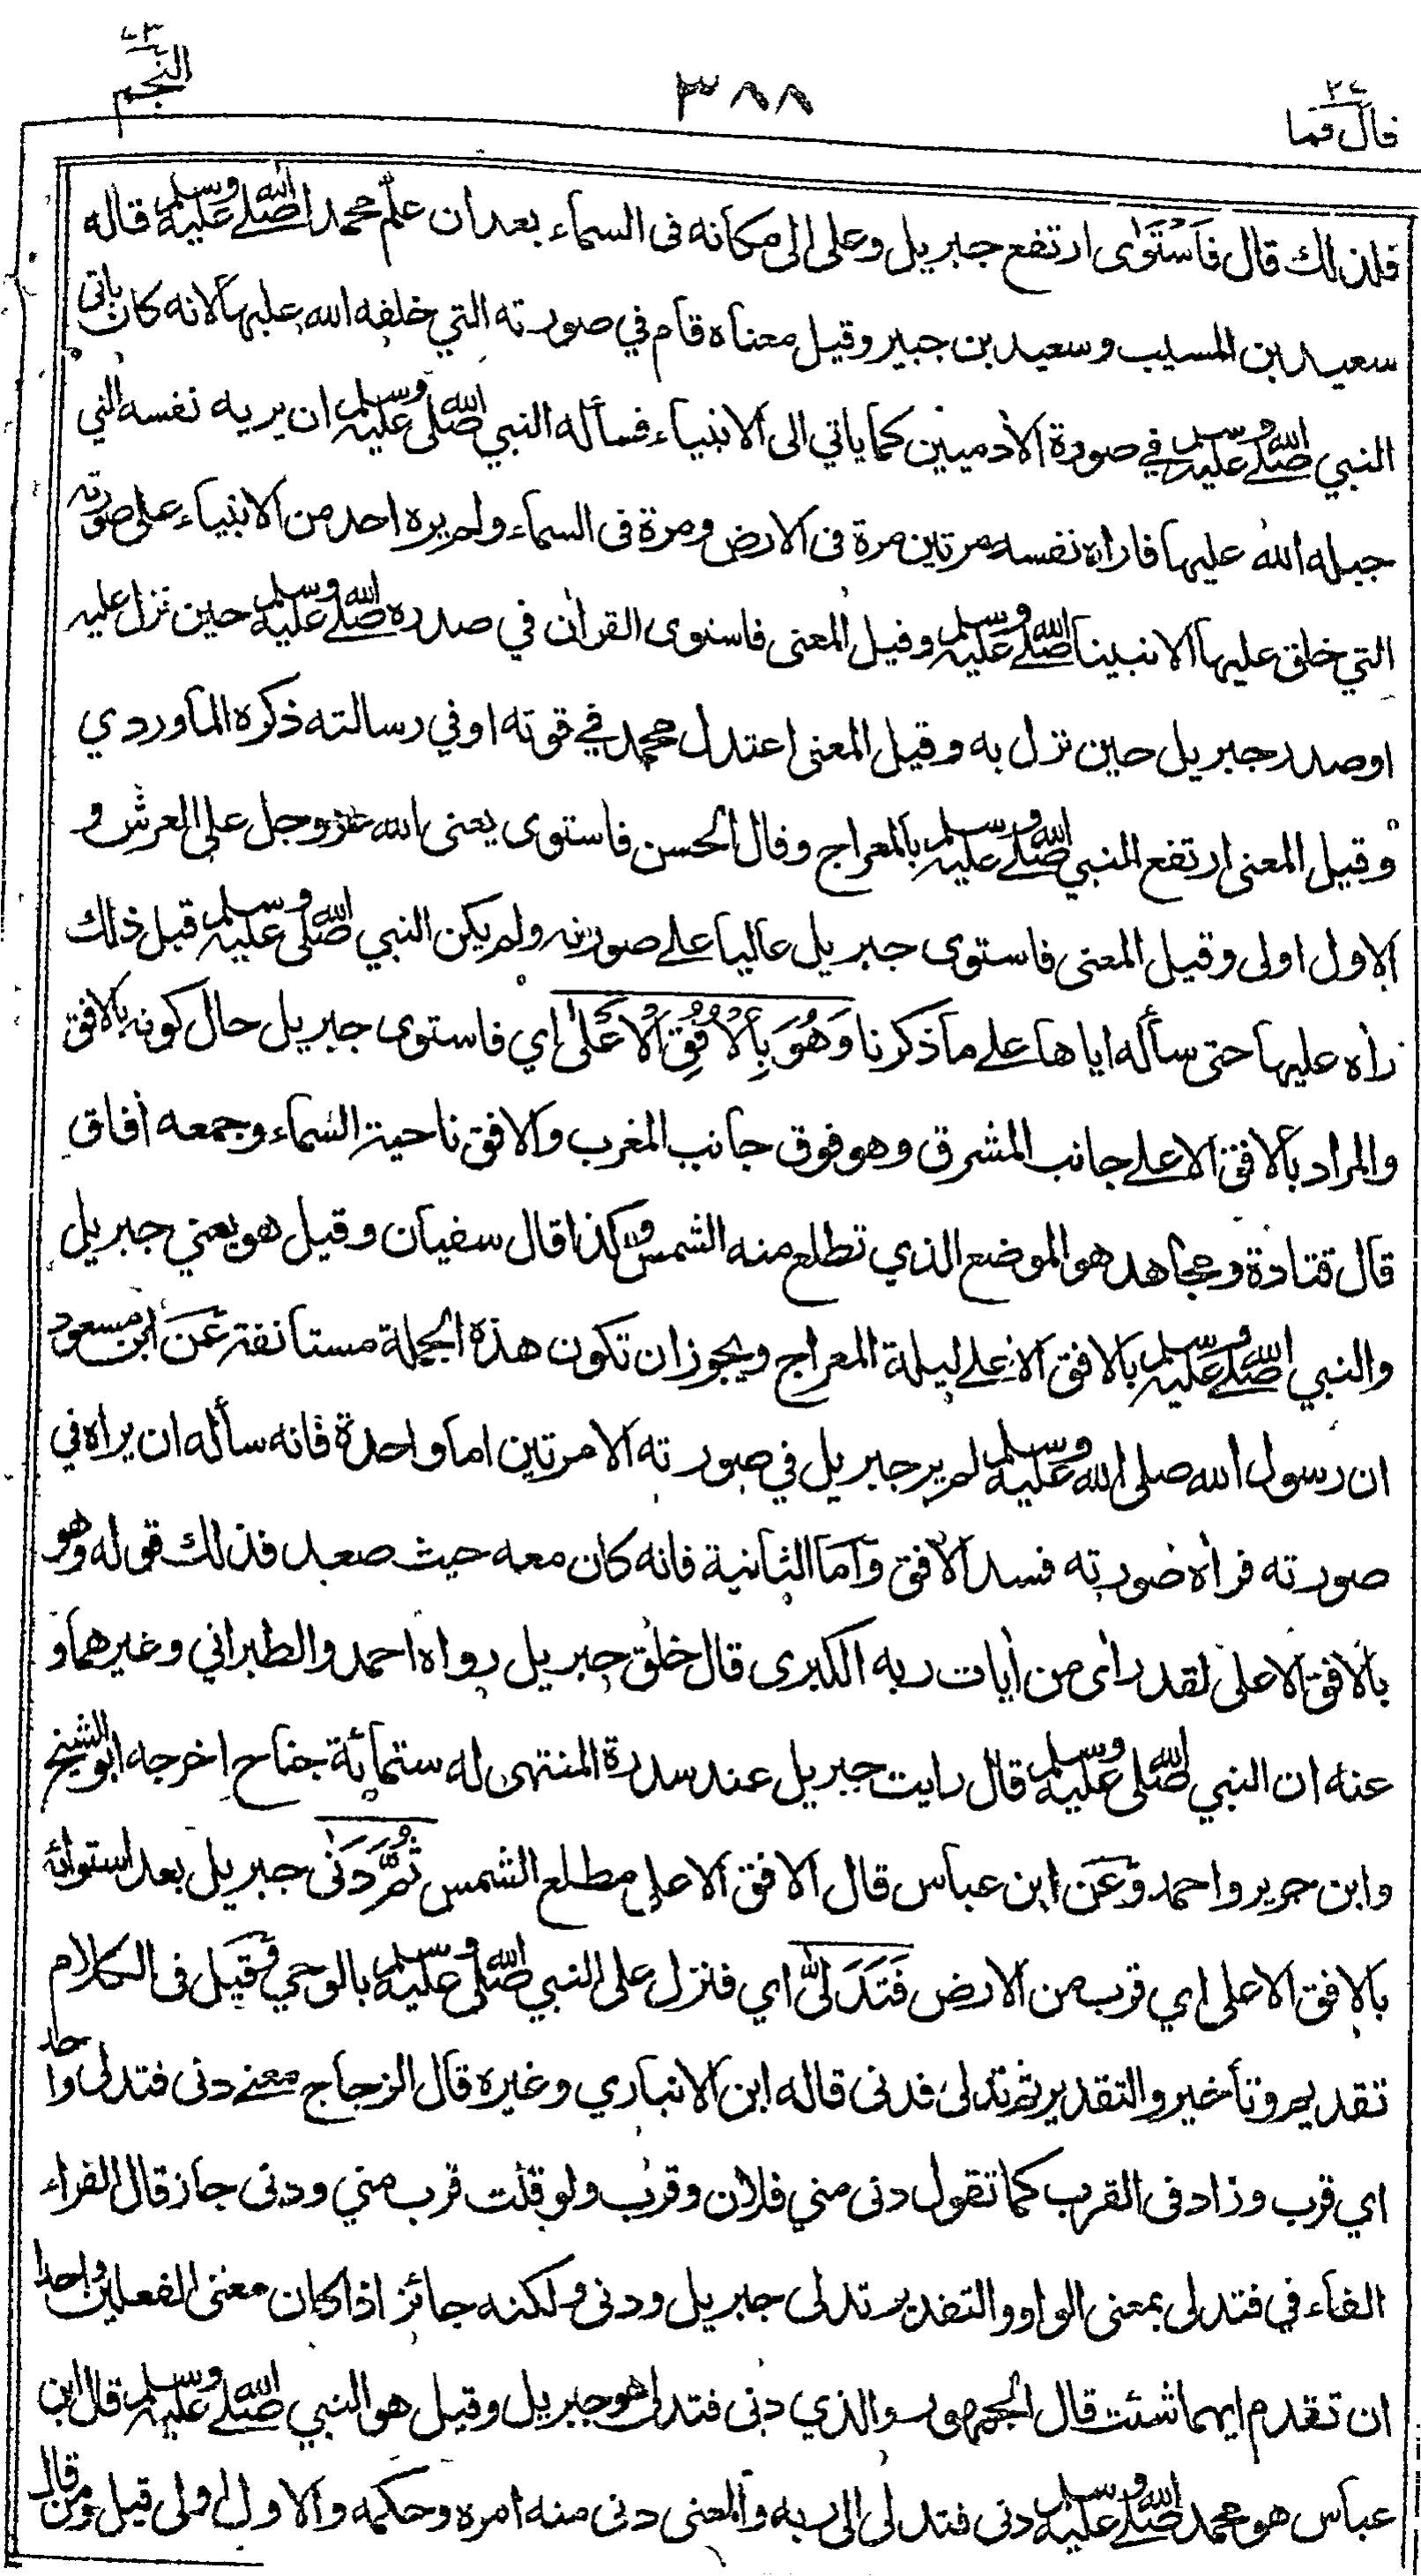 قال فما ٢٧
٣٨٨
النجم ٥٣
فلذلك قال فَاسْتَوٰى ارتفع جبريل وعلى الى مكانه فى السماء بعد ان علم محمدا صلى الله عليه وسلم قاله
سعيد بن المسيب وسعيد بن جبير وقيل معناه قام في صورته التي خلقه الله عليها لانه كان ياتى
النبي صلى الله عليه وسلم في صورة الأدميين كما ياتي الى الانبياء فسأله النبي صلى الله عليه وسلم ان يريه نفسه التي
جبله الله عليها فاراه نفسه مرتين مرة فى الارض ومرة فى السماء ولم يره احد من الانبياء على صورته
التي خلق عليها الا نبينا صلى الله عليه وسلم وقيل المعنى فاستوى القرأن في صدره صلى الله عليه وسلم حين نزل عليه
او صدر جبريل حين نزل به وقيل المعنى اعتدل محمد في قوته او في رسالته ذكره الماوردي
وقيل المعنى ارتفع النبي صلى الله عليه وسلم بالمعراج وقال الحسن فاستوى يعنى الله عزوجل على العرش و
الاول اولى وقيل المعنى فاستوى جبريل عاليا على صورته ولم يكن النبي صلى الله عليه وسلم قبل ذلك
راه عليها حتى سأله اياها على ما ذكرنا وَهُوَ بِالْاُفُقِ الْاَعْلٰى اي فاستوى جبريل حال كونه بالافق
والمراد بالافق الاعلے جانب المشرق وهو فوق جانب المغرب والافق ناحية السماء وجمعه أفاق
قال قتادة ومجاهد هو الموضع الذي تطلع منه الشمس وكذا قال سفيان وقيل هو يعني جبريل
والنبي صلى الله عليه وسلم بالافق الاعلے ليلة المعراج ويجوز ان تكون هذه الجملة مستانفة عن ابن مسعود
ان رسول الله صلى الله عليه وسلم لم ير جبريل في صورته الا مرتين اما واحدة فانه سأله ان يراه في
صورته فراه صورته فسد الافق واما الثانية فانه كان معه حيث صعد فذلك قوله وهو
بالافق الاعلى لقد رأى من أيات ربه الكبرى قال خلق جبريل رواه احمد والطبراني وغيرهما و
عنه ان النبي صلى الله عليه وسلم قال رايت جبريل عند سدرة المنتهى له ستمائة جناح اخرجه ابو الشيخ
وابن جرير واحمد وعن ابن عباس قال الافق الاعلى مطلع الشمس ثُمَّ دَنٰى جبريل بعد استوائه
بالافق الاعلى اي قرب من الارض فَتَدَلّٰى اي فنزل على النبي صلى الله عليه وسلم بالوحي فقيل فى الكلام
تقديم وتأخير والتقدير ثم تدلى فدنى قاله ابن الانباري وغيره قال الزجاج معنے دنى فتدلى واحد
اي قرب وزاد فى القرب كما تقول دنى مني فلان وقرب ولو قلت قرب مني ودنى جاز قال الفراء
الفاء في فتدلى بمعنى الواو والتقدير تدلى جبريل ودنى ولكنه جائز اذا كان معنى الفعلين واحدا
ان تقدم ايهما شئت قال الجمهور والذي دنى فتدلى هو جبريل وقيل هو النبي صلى الله عليه وسلم قال ابن
عباس هو محمد صلى الله عليه وسلم دنى فتدلى الى ربه والمعنى دنى منه امره وحكمه والاول اولى قيل ومن قال